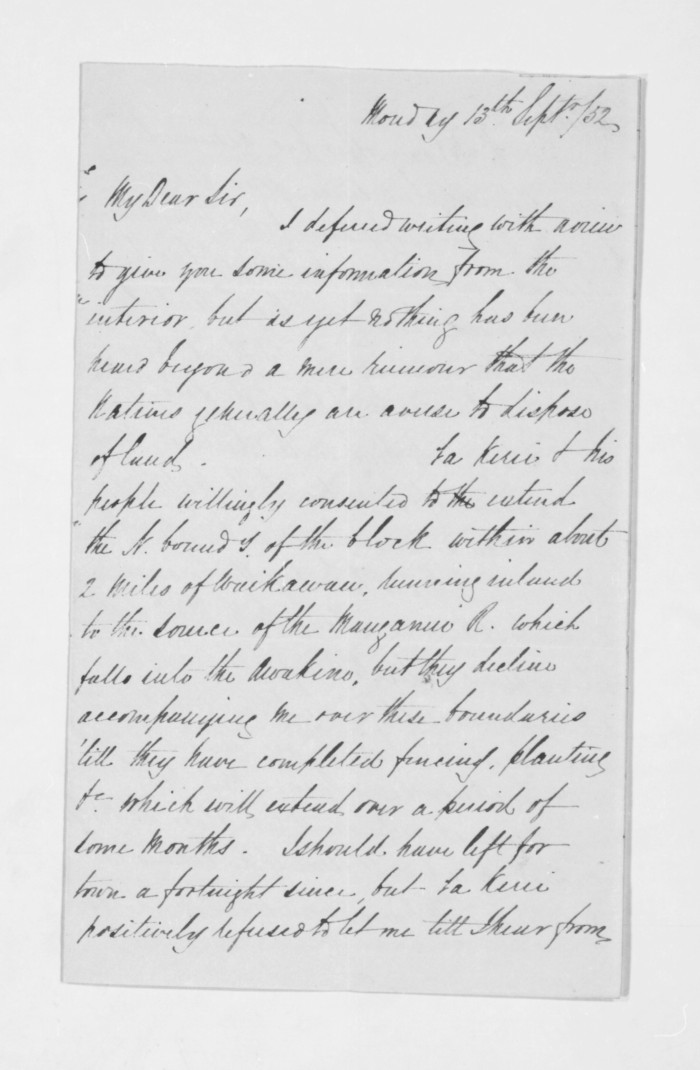 Monday 13th. Septr./52
My Dear Sir,
I deferred writing with a view
to give you some information from the
interior, but as yet nothing has been
heard beyond a mere rumour that the
Natives generally are averse to dispose
of land. Ta Kerei & his
people willingly consented to the extend
the N. boundy. of the block within about
2 miles of Waikawau, running inland
to the source of the Manganui R. which
falls into the Awakino, but they decline
accompanying me over these boundaries
'till they have completed fencing, planting
&c. which will extend over a period of
some months. I should have left for
town a fortnight since, but Ta Kerei
positively refused to let me till I hear from